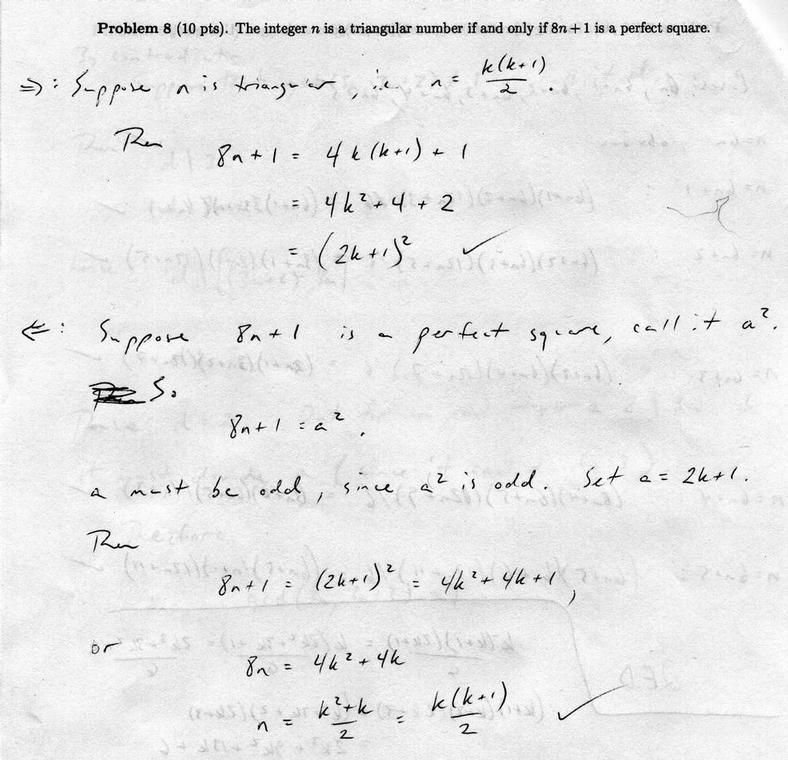 Problem 8 (10 pts). The integer n is a triangular number if and only if 8n + 1 is a perfect square.
⇒: Suppose n is triangular, i.e. n = k(k+1)/2.
Then
8n+1 = 4k(k+1) + 1
= 4k² + 4 + 2
= (2k+1)² ✓
⇐: Suppose 8n+1 is a perfect square, call it a².
So
8n+1 = a².
a must be odd, since a² is odd. Set a = 2k+1.
Then
8n+1 = (2k+1)² = 4k² + 4k + 1,
or
8n = 4k² + 4k
n = k²+k/2 = k(k+1)/2 ✓